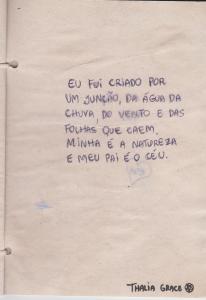 EU FUI CRIADO POR
UM JUNÇÃO, DA ÁGUA DA
CHUVA, DO VENTO E DAS
FOLHAS QUE CAEM.
MINHA É A NATUREZA
E MEU PAI É O CÉU.
THALIA GRACE